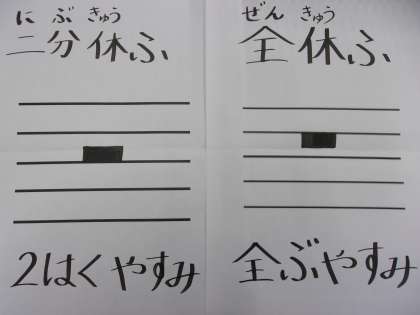 にぶきゅう
二分休ふ
2はくやすみ
ぜんきゅう
全休ふ
全ぶやすみ